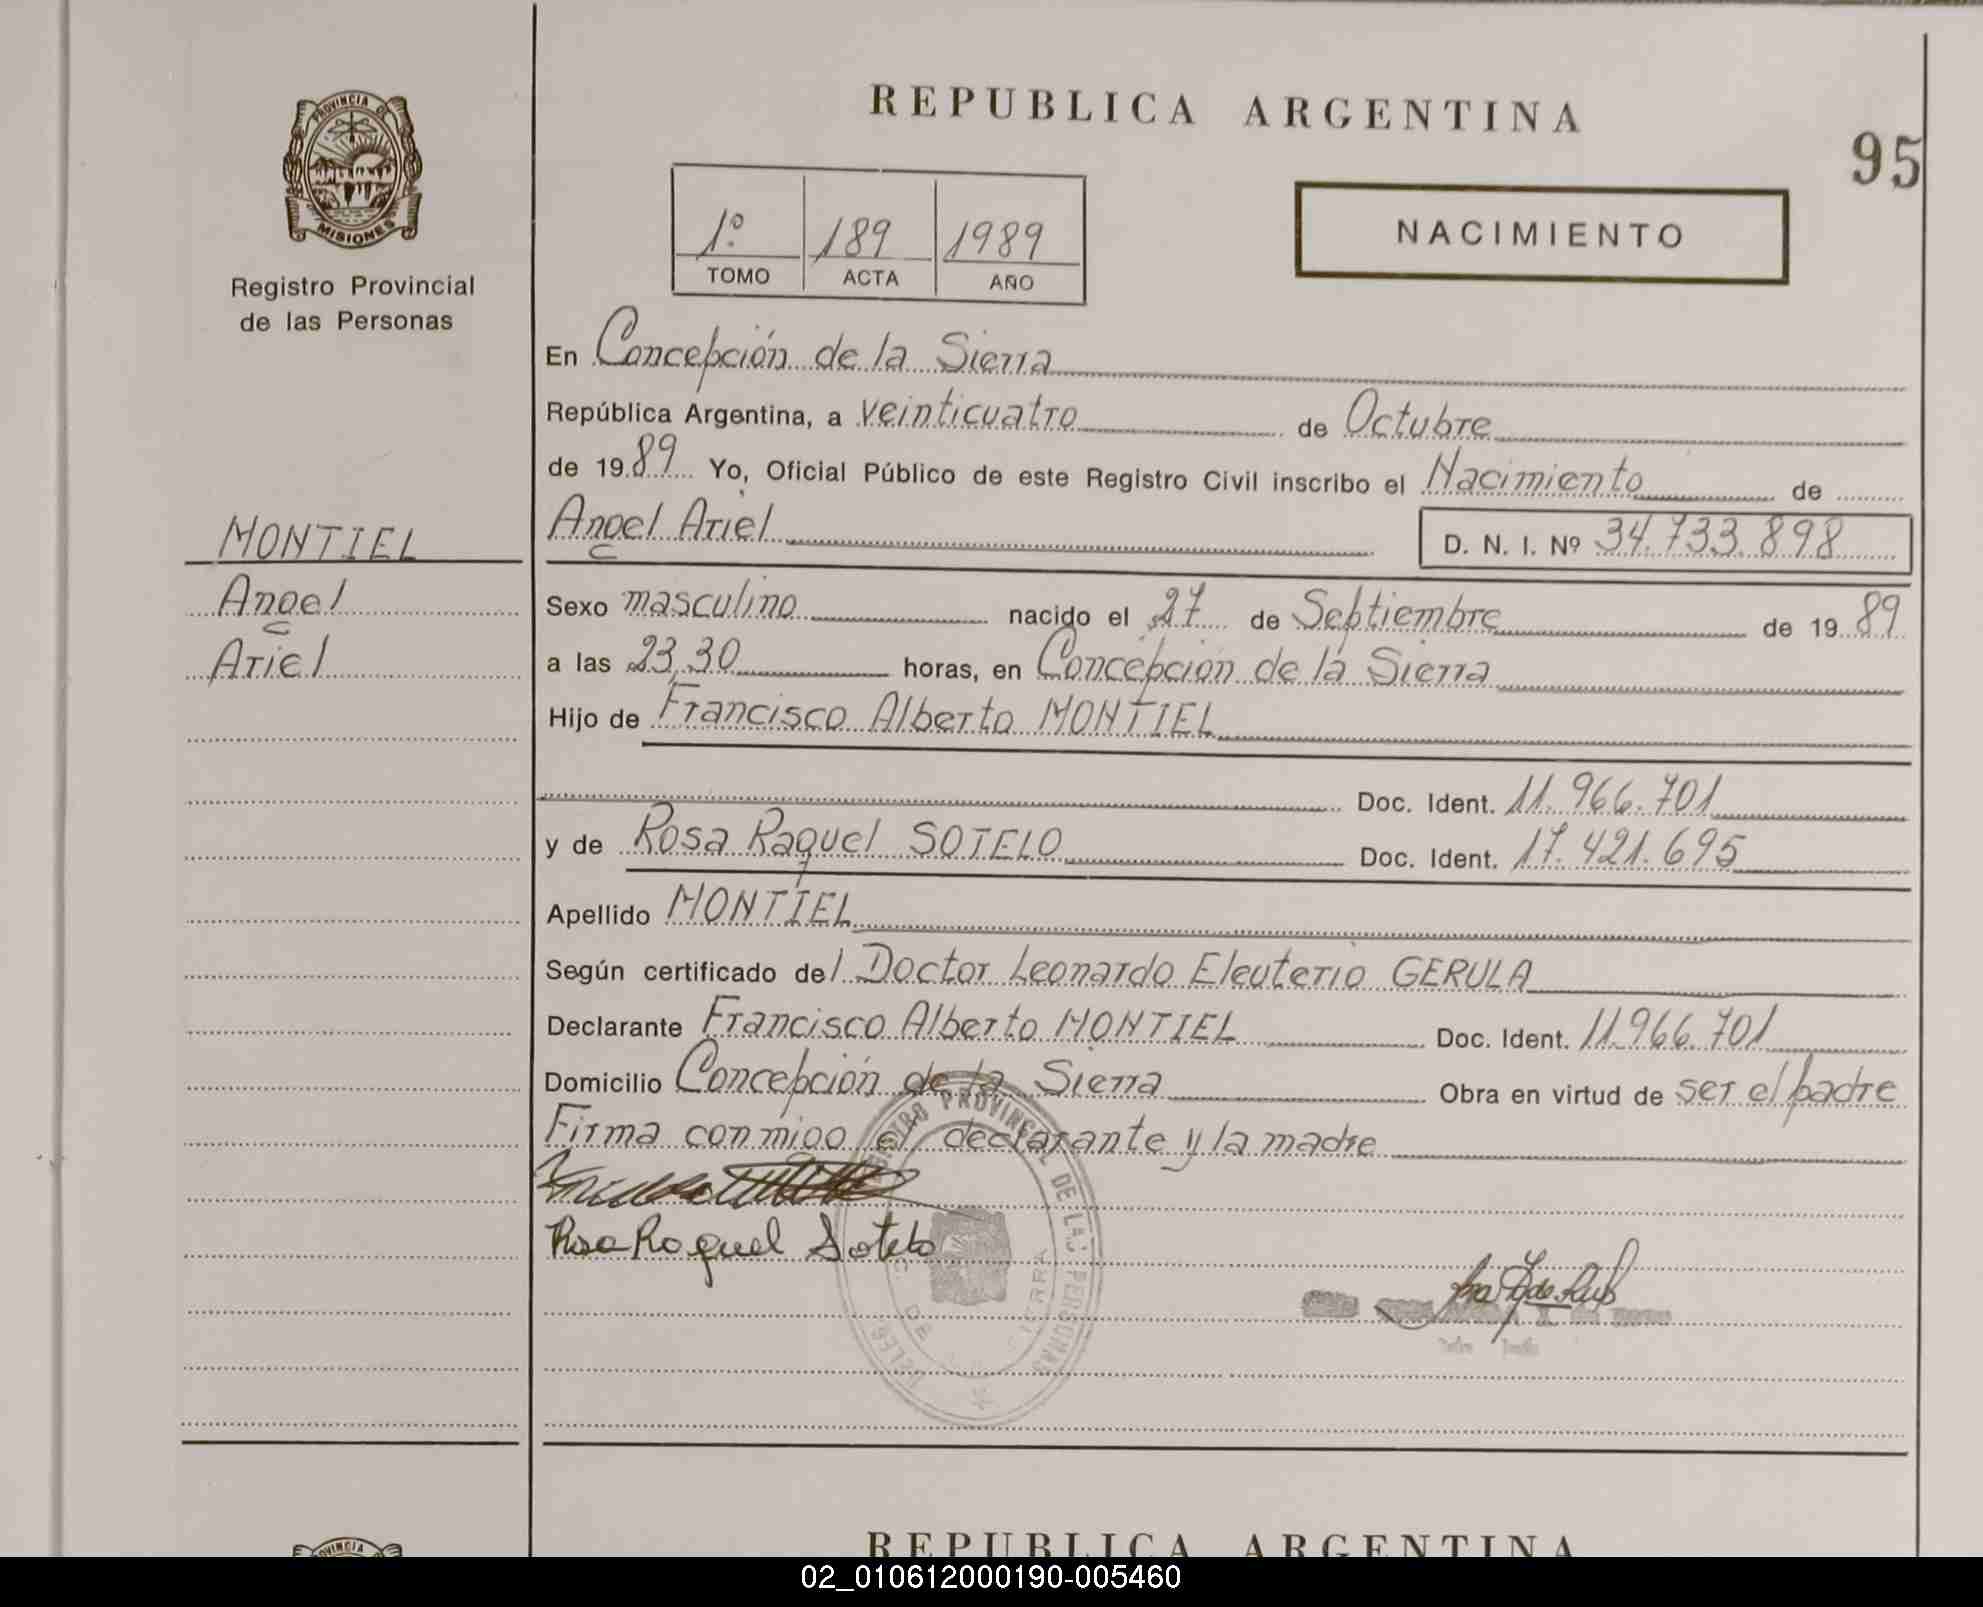 REPUBLICA ARGENTINA
95
PROVINCIA DE
MISIONES
Registro Provincial
de las Personas
1º 189 1989
TOMO ACTA AÑO
NACIMIENTO
En Concepción de la Sierra
República Argentina, a veinticuatro de Octubre
de 1989 Yo, Oficial Público de este Registro Civil inscribo el Nacimiento de
MONTIEL
Angel
Ariel
Angel Ariel D. N. I. Nº 34.733.898
Sexo masculino nacido el 27 de Septiembre de 1989
a las 23,30 horas, en Concepción de la Sierra
Hijo de Francisco Alberto MONTIEL
Doc. Ident. 11.966.701
y de Rosa Raquel SOTELO Doc. Ident. 17.421.695
Apellido MONTIEL
Según certificado del Doctor Leonardo Eleuterio GERULA
Declarante Francisco Alberto MONTIEL Doc. Ident. 11.966.701
Domicilio Concepción de la Sierra Obra en virtud de ser el padre
Firma conmigo el declarante y la madre
Rosa Raquel Sotelo
REGISTRO PROVINCIAL DE LAS PERSONAS
C. DE SIERRA
REPUBLICA ARGENTINA
02_010612000190-005460